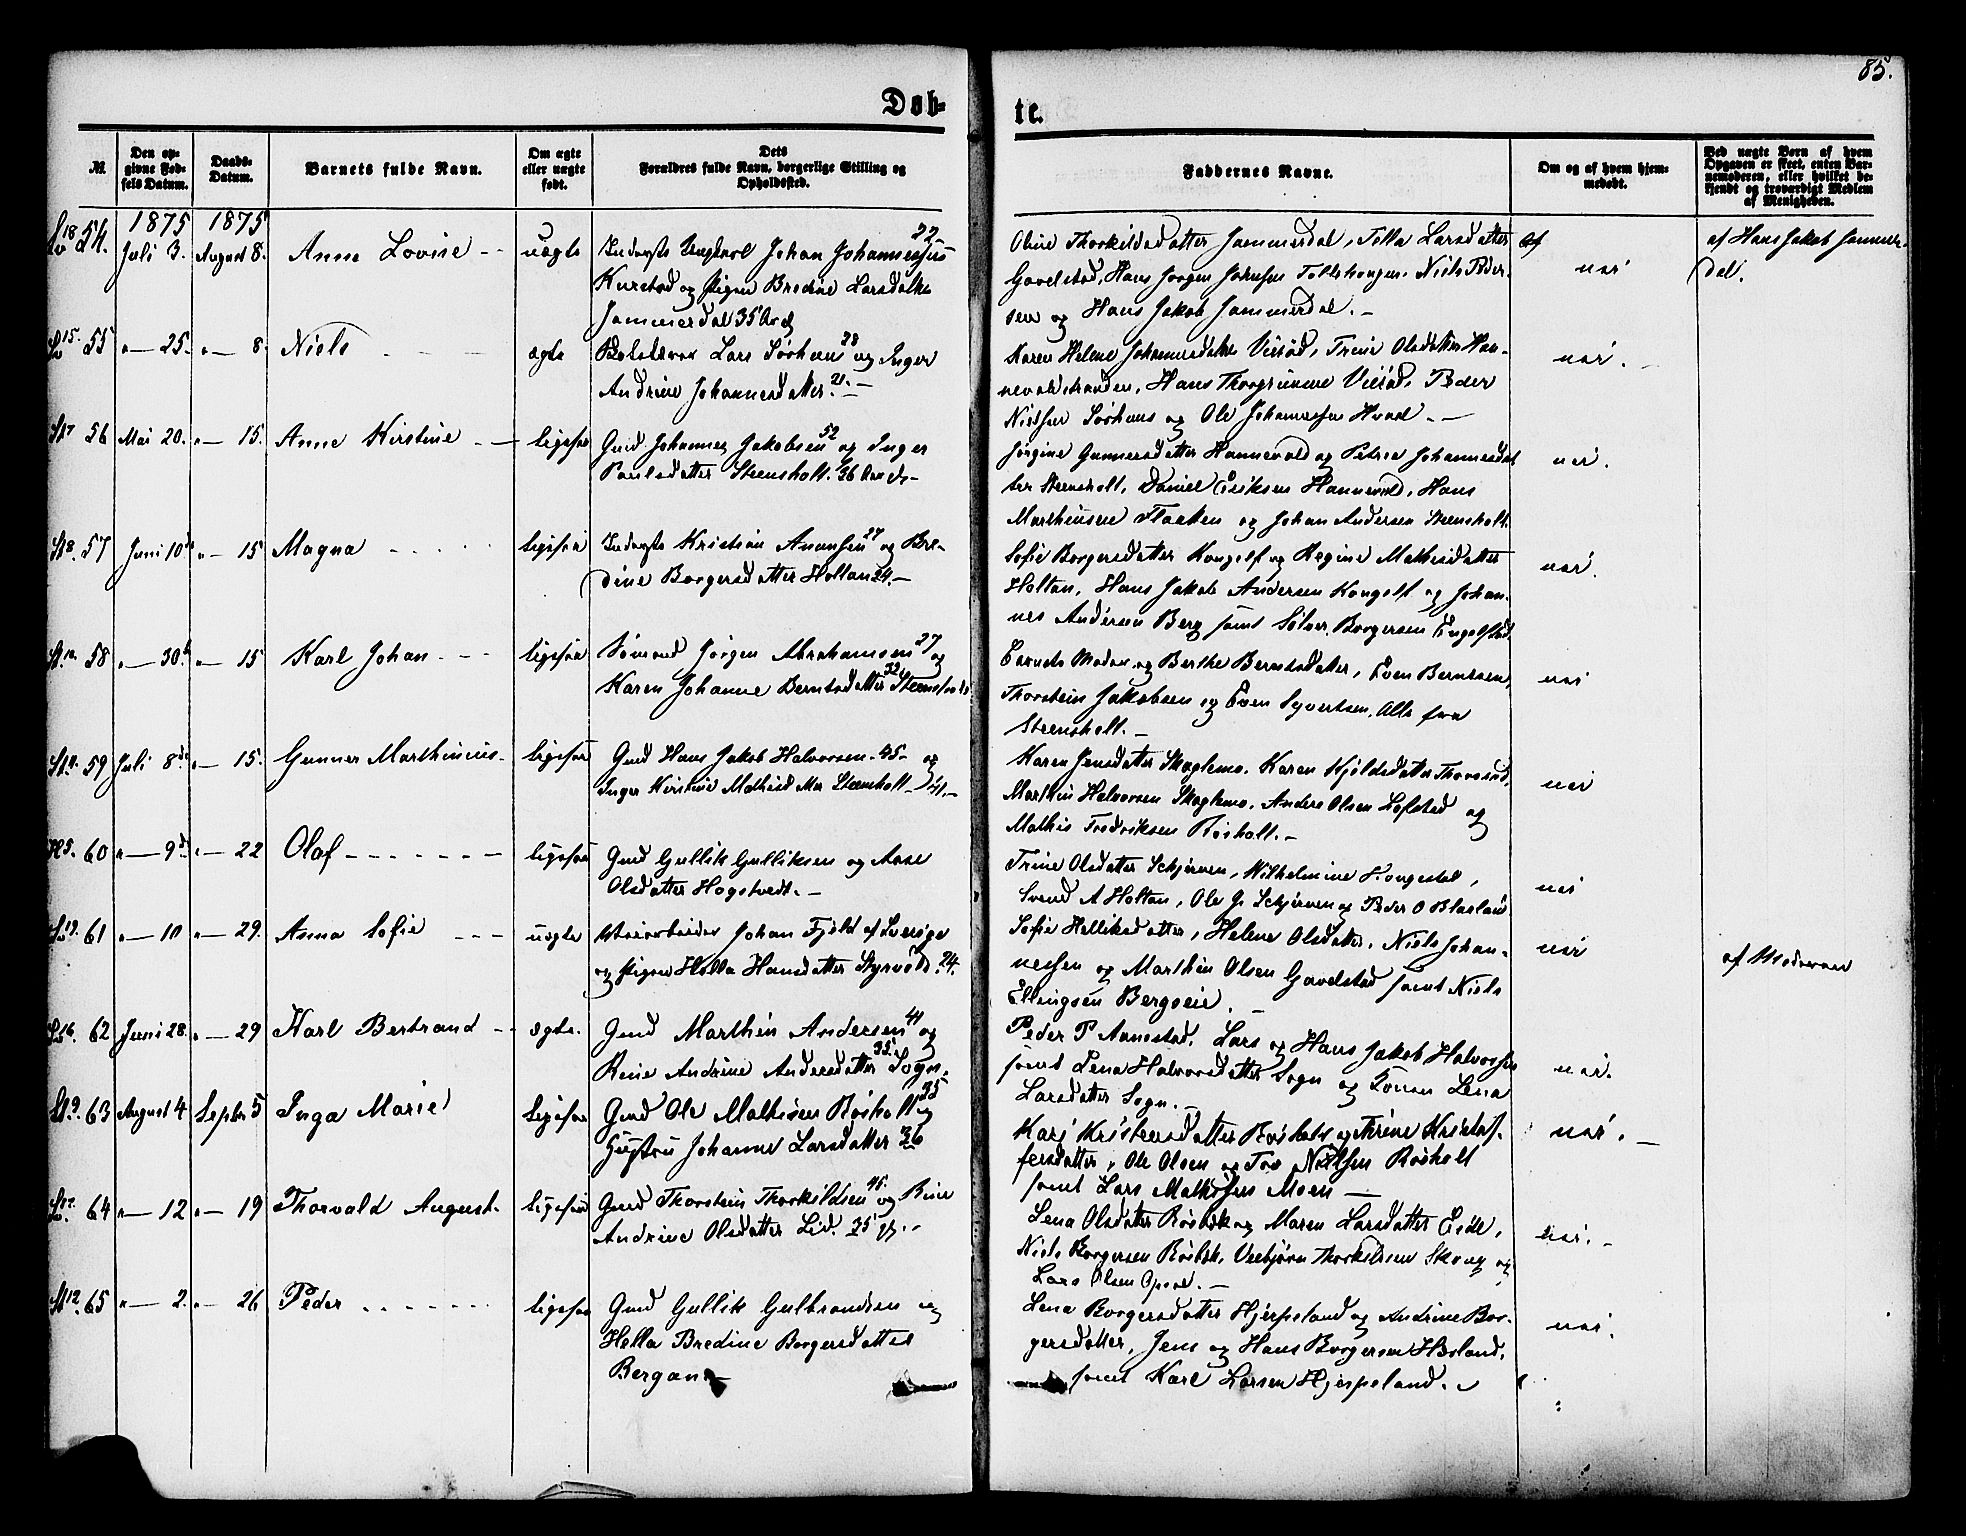 85.
Døb-
te.
№
Den op-
givne Fød-
sels Datum.
Daabs-
Datum.
Barnets fulde Navn.
Om ægte
eller uægte
født.
Dets
Forældres fulde Navn, borgerlige Stilling og
Opholdssted.
Faddernes Navne.
Om og af hvem hjem-
medøbt.
Ved uægte Børn af hvem
Opgaven er skeet, enten Bar-
nemoderen, eller hvilket be-
kjendt og troværdigt Medlem
af Menigheden.
1875 1875
54. Juli 3. August 8. Anne Lovise uægte
Johan Johannessen 22
og Pigen Bredine Larsdatter
Jammerdal 35
Oline Thorkildsdatter Jammerdal, Larsdatter
Gavelstad, Hans Jørgen Niels Peder-
sen og Hans Jakob Jammerdal.
nei
af Hans Jakob Jammer-
dal.
55 " 25. " 8. Niels ægte
Lars 28 og Inger
Andrine Johannesdatter. 21.
Karen Helene Johannesdatter Trine Olsdatter Han-
nevoldstranden, Hans Peder
Nielsen og Ole Johannessen
nei.
56 Mai 20. " 15. Anne Kirstine ligesaa
Gmd Johannes Jakobsen 52 og Inger
Paulsdatter Steensholt. 36
Jørgine Gunnersdatter Hannevold og Petrea Johannesdat
ter Steensholt, Daniel Eriksen Hannevold, Hans
Marthinsen og Johan Andersen Steensholt.
nei.
57 Juni 10 " 15 Magna ligesaa
Inderste Kristian 27 og Bre-
dine Borgersdatter Holtan 24.
Sofie Borgersdatter og Regine Mathisdatter
Holtan, Hans Jakob Andersen og Johan-
nes Andersen Berg samt Sølver Borgersen Engelstad
nei.
58 " 30. " 15 Karl Johan ligesaa
Sømand Jørgen Abrahamsen 27 og
Karen Johanne Berntsdatter 32 Steensholt
Barnets Moder og Berthe Berntsdatter, Even Berntsen,
Thorstein Jakobsen og Even Syvertsen. Alle fra
Steensholt.
nei
59 Juli 8 " 15. Gunner Marthinius ligesaa
Gmd Hans Jakob Halvorsen 45 og
Inger Kirstine Mathisdatter Steensholt 41.
Karen Jensdatter Skoglemo. Karen Kjeldsdatter
Marthin Halvorsen Skoglemo. Anders Olsen Lofstad og
Mathis Fredriksen Røsholt.
nei
60 " 9 " 22 Olaf ligesaa
Gmd Gullik Gulliksen og Aase
Olsdatter Hogstvedt.
Trine Olsdatter Schjerven, Wilhelmine
Svend A Holtan, Ole G. Schjerven og Peder O
nei
61 " 10 " 29. Anna Sofie uægte
Veiarbeider Johan Fjeld af Sverige
og Pigen Helle Hansdatter Styrvold 24.
Sofie Helliksdatter, Helene Olsdatter, Niels Johan-
nessen og Marthin Olsen Gavelstad samt Niels
Ellingsen Bergseie.
nei
af Moderen
62 Juni 28. " 29 Karl Bertrand ægte.
Gmd Marthin Andersen 41 og
Rine Andrine Andersdatter 35 Sogn.
Peder P Aunestad. Lars og Hans Jakob Halvorsen
samt Lena Halvorsdatter Sogn og Konen Lena
Larsdatter Sogn.
nei.
63 August 4 Septbr 5 Inga Marie ligesaa
Gmd Ole Mathisen Røsholt 35 og
Hustru Johanne Larsdatter 36
Kari Kristensdatter Røsholt og Trine Kristof-
fersdatter, Ole Olsen og Tor Nielsen Røsholt
samt Lars Mathisen Moen
nei.
64 " 12 " 19 Thorvald August. ligesaa
Gmd Thorstein Thorkildsen 45. og Rine
Andrine Olsdatter Lid. 35
Lena Olsdatter Røsbæk og Maren Larsdatter Eide,
Niels Borgersen Røsbæk, Veebjørn Thorkildsen Skoug og
Lars Olsen
nei.
65 " 2. " 26 Peder ligesaa
Gmd Gullik Gulbrandsen og
Helle Bredine Borgersdatter
Bergan.
Lena Borgersdatter Hjerpeland og Andrine Bor-
gersdatter, Jens og Hans Borgersen
samt Karl Larsen Hjerpeland.
nei.